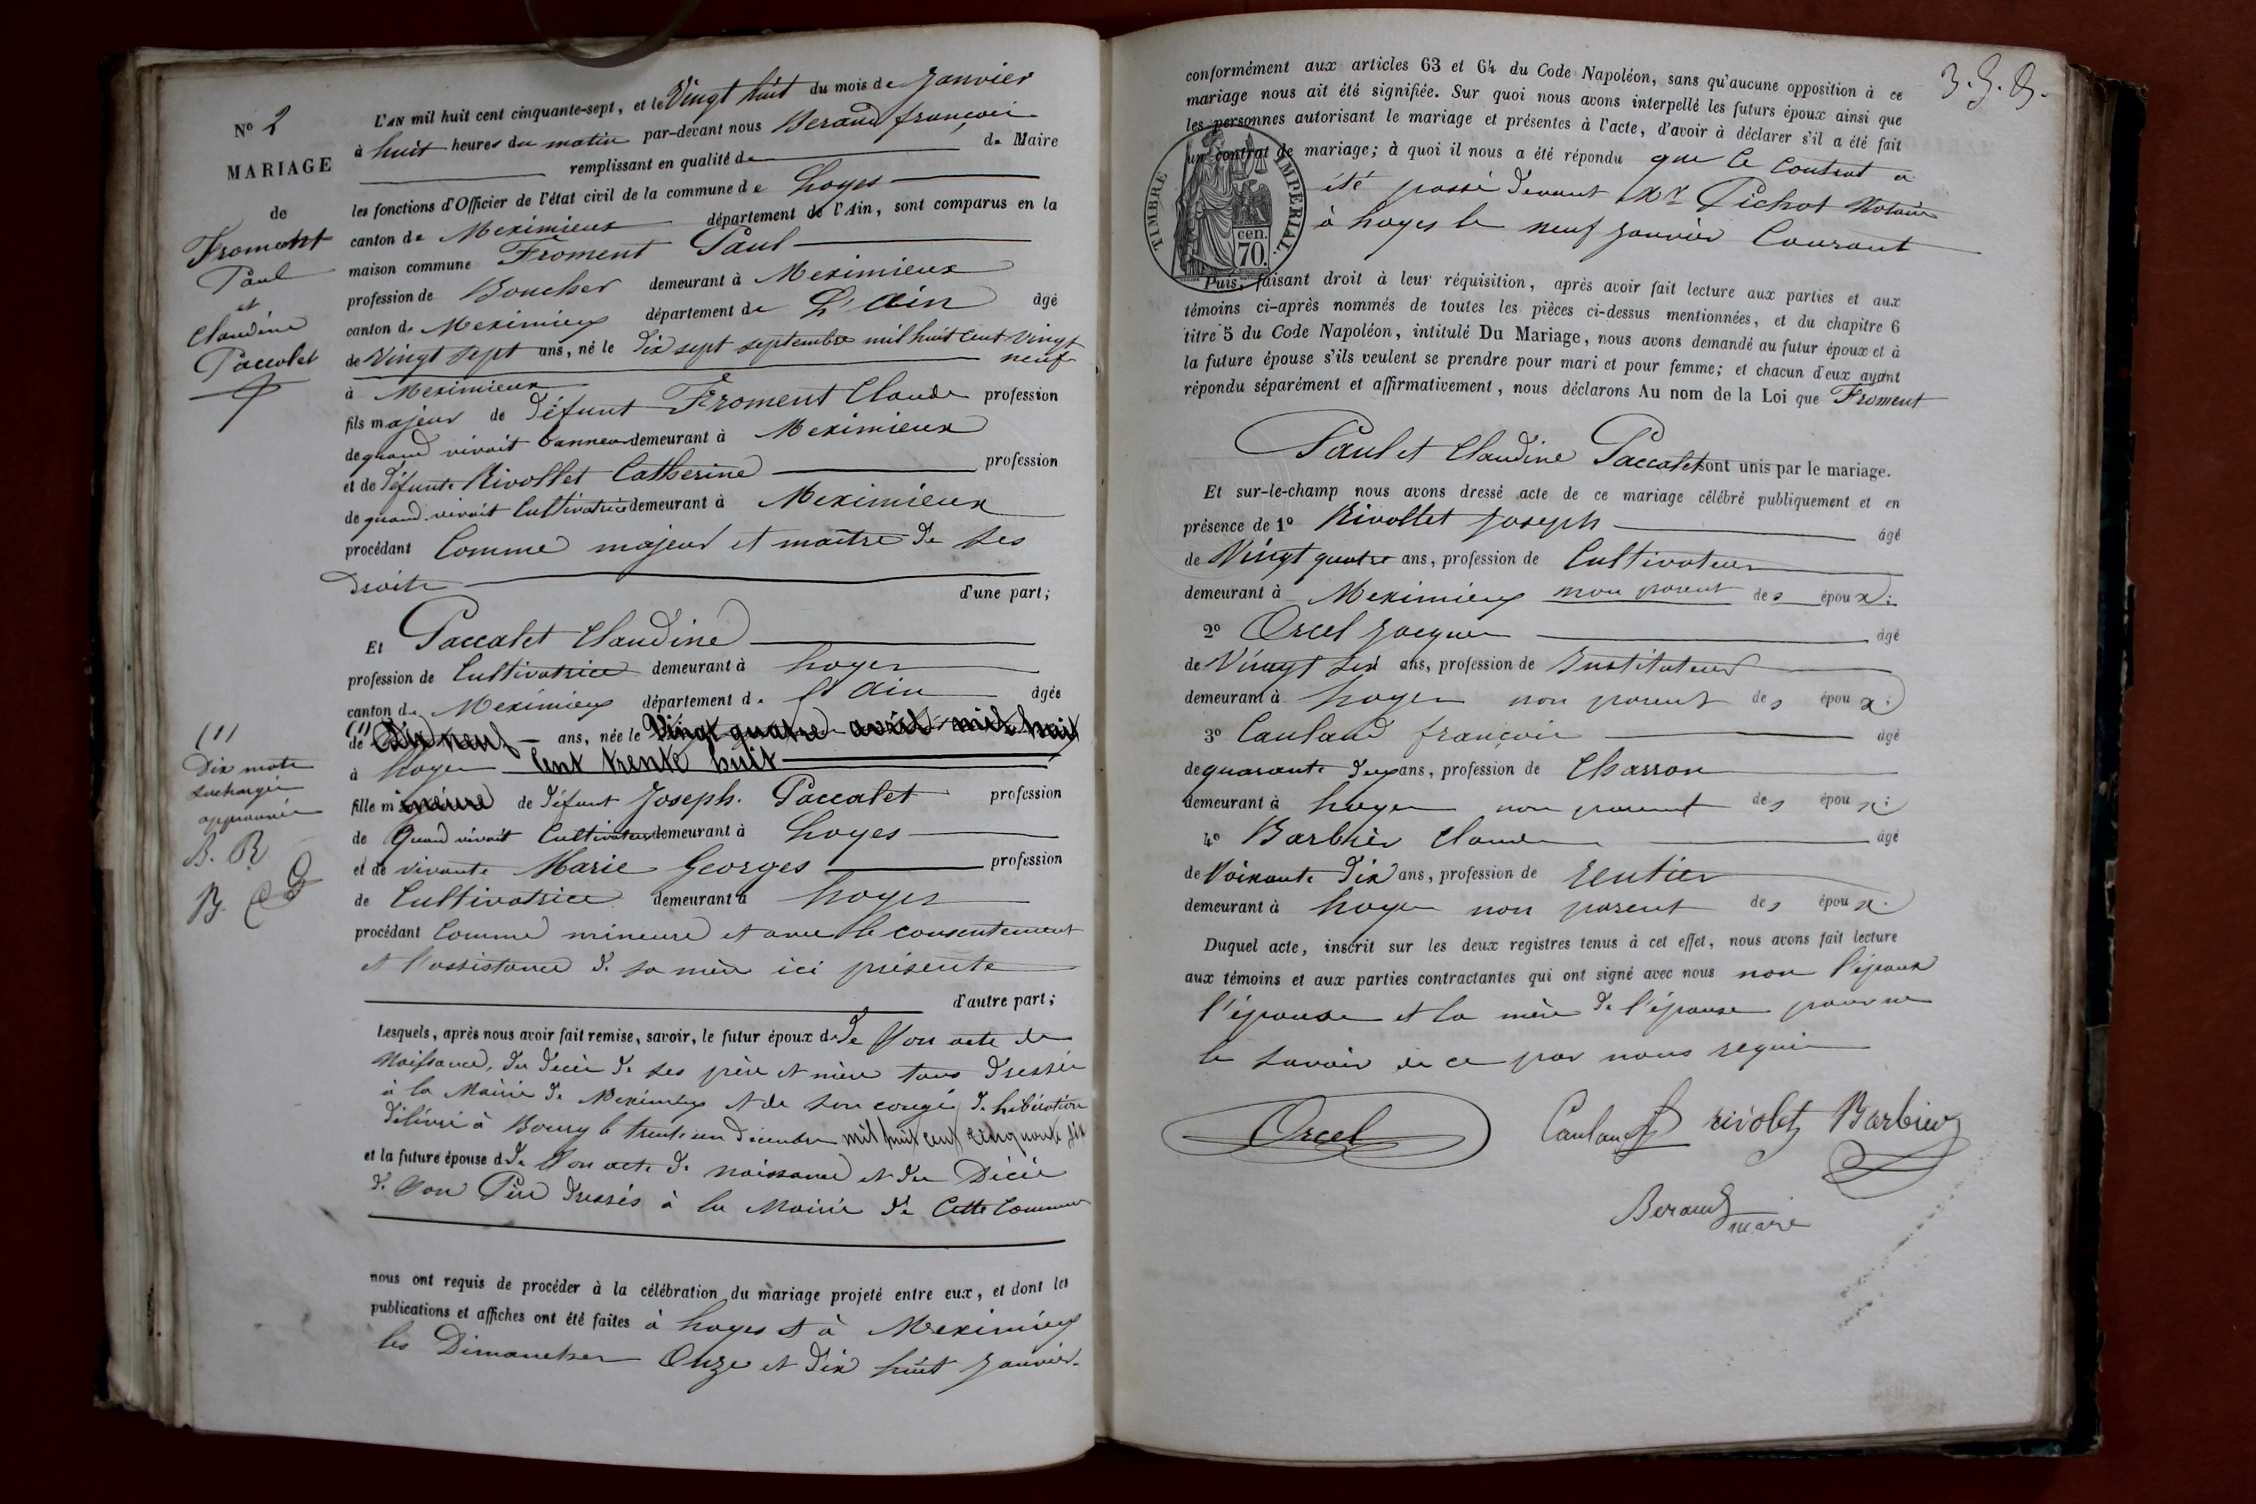 N° 2
MARIAGE
de
Froment
Paul
et
Claudine
Paccalet
L'AN mil huit cent cinquante-sept, et le Vingt huit du mois de Janvier
à huit heures du matin par-devant nous Beraud françois
remplissant en qualité de de Maire
les fonctions d'Officier de l'état civil de la commune de Loyes
canton de Meximieux département de l'Ain, sont comparus en la
maison commune Froment Paul
profession de Boucher demeurant à Meximieux
canton de Meximieux département de L'Ain âgé
de Vingt sept ans, né le dix sept septembre mil huit cent vingt
neuf
à Meximieux
fils majeur de défunt Froment Claude profession
de quand vivait demeurant à Meximieux
et de défunte Rivollet Catherine profession
de quand vivait Cultivatrice demeurant à Meximieux
procédant Comme majeur et maître de ses
droits
d'une part;
Et Paccalet Claudine
profession de Cultivatrice demeurant à Loyes
canton de Meximieux département de l'Ain âgée
(1)
de Dix neuf ans, née le Vingt quatre avril mil huit
à Loyes Cent trente huit
fille mineure de défunt Joseph Paccalet profession
de Quand vivait Cultivateur demeurant à Loyes
et de vivante Marie Georges profession
de Cultivatrice demeurant à Loyes
procédant Comme mineure et avec le consentement
et l'assistance de sa mère ici présente
d'autre part;
(1)
Dix mots
surchargés
approuvés
B. R
B. C G
Lesquels, après nous avoir fait remise, savoir, le futur époux de de son acte de
Naissance, du décès de ses père et mère tous dressés
à la Mairie de Meximieux et de son congé de libération
délivré à Bourg le trente un décembre mil huit cent cinquante six
et la future épouse d de son acte de naissance et du Décès
de son Père dressés à la Mairie de Cette Commune
nous ont requis de procéder à la célébration du mariage projeté entre eux, et dont les
publications et affiches ont été faites à Loyes et à Meximieux
les Dimanches Onze et dix huit Janvier.
conformément aux articles 63 et 64 du Code Napoléon, sans qu'aucune opposition à ce
mariage nous ait été signifiée. Sur quoi nous avons interpellé les futurs époux ainsi que
les personnes autorisant le mariage et présentes à l'acte, d'avoir à déclarer s'il a été fait
un contrat de mariage; à quoi il nous a été répondu que le Contrat a
été passé devant Mr Pichot Notaire
à Loyes le neuf Janvier Courant
TIMBRE IMPERIAL.
cen.
70.
Puis, faisant droit à leur réquisition, après avoir fait lecture aux parties et aux
témoins ci-après nommés de toutes les pièces ci-dessus mentionnées, et du chapitre 6
titre 5 du Code Napoléon, intitulé Du Mariage, nous avons demandé au futur époux et à
la future épouse s'ils veulent se prendre pour mari et pour femme; et chacun d'eux ayant
répondu séparément et affirmativement, nous déclarons Au nom de la Loi que Froment
Paul et Claudine Paccalet sont unis par le mariage.
Et sur-le-champ nous avons dressé acte de ce mariage célébré publiquement et en
présence de 1° Rivollet Joseph âgé
de Vingt quatre ans, profession de Cultivateur
demeurant à Meximieux non parent des époux;
2° Orcel Jacques âgé
de Vingt six ans, profession de Instituteur
demeurant à Loyes non parent des époux;
3° Cauland françois âgé
de quarante deux ans, profession de Charron
demeurant à Loyes non parent des époux;
4° Barbier Claude âgé
de Soixante dix ans, profession de rentier
demeurant à Loyes non parent des époux.
Duquel acte, inscrit sur les deux registres tenus à cet effet, nous avons fait lecture
aux témoins et aux parties contractantes qui ont signé avec nous non l'époux
l'épouse et la mère de l'épouse pour ne
le savoir de ce par nous requis
Orcel Cauland rivolet Barbier
Beraud
maire